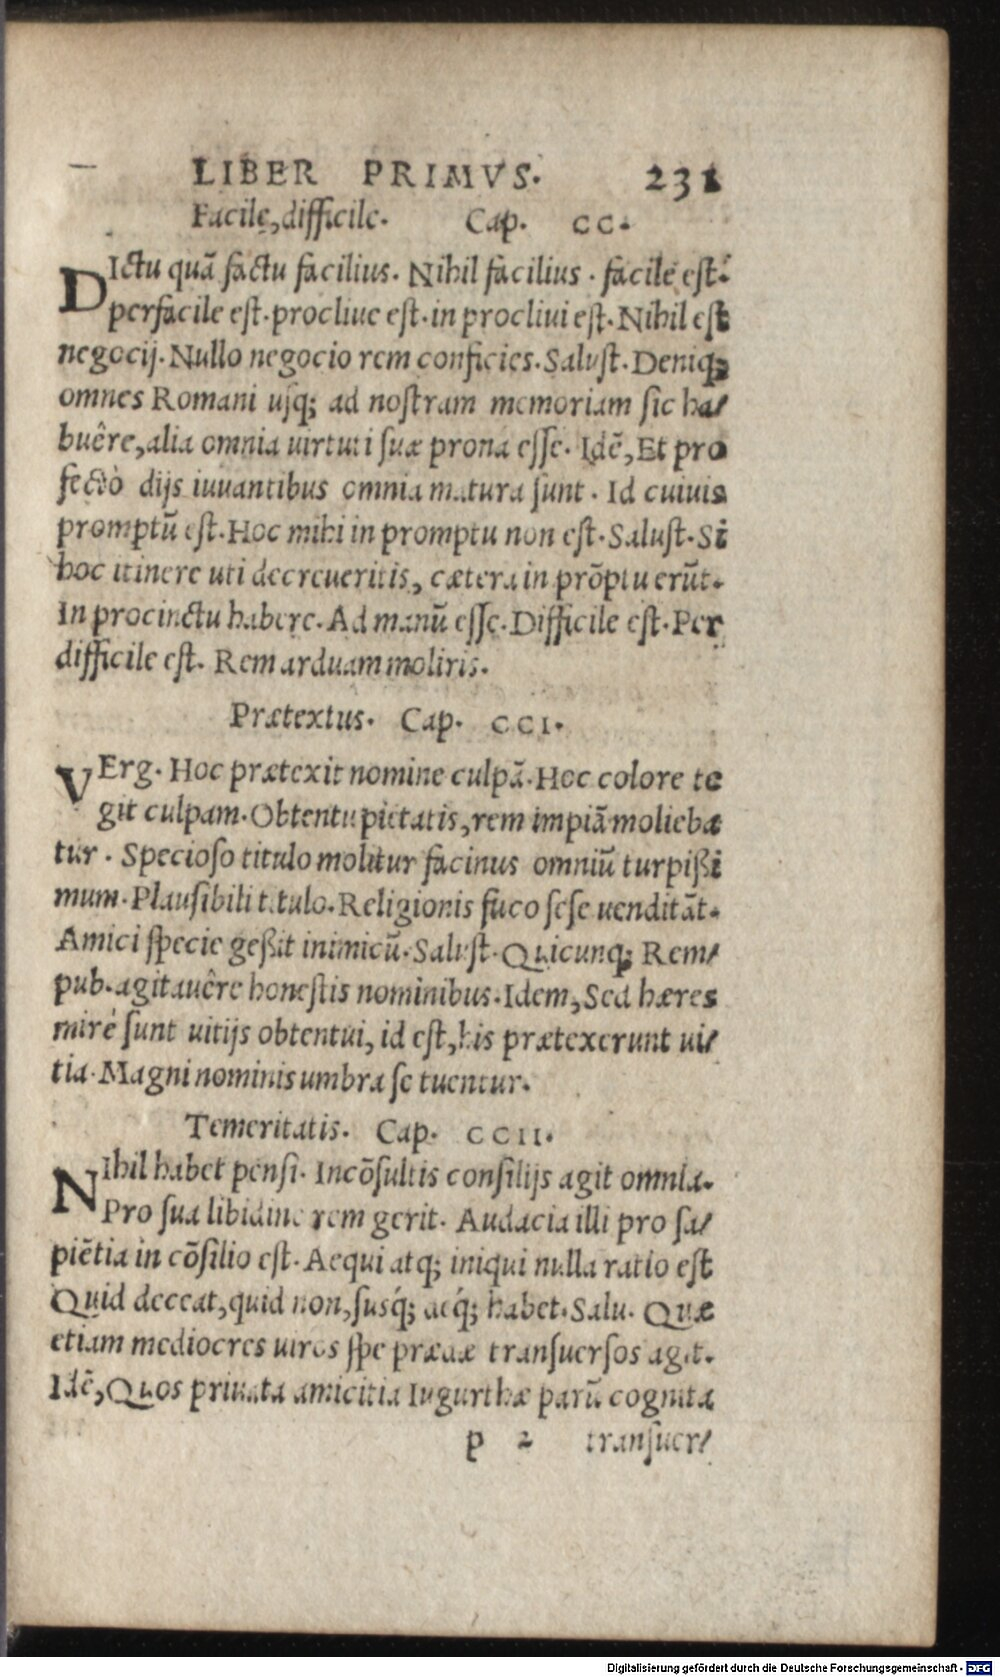 LIBER PRIMVS. 231
Facile, difficile. Cap. CC.
DIctu quā factu facilius. Nihil facilius. facile est.
perfacile est. procliue est. in procliui est. Nihil est
negocij. Nullo negocio rem conficies. Salust. Deniq;
omnes Romani usq; ad nostram memoriam sic ha/
buêre, alia omnia uirtuti suæ prona esse. Idē, Et pro
fectò dijs iuuantibus omnia matura sunt. Id cuiuis
promptū est. Hoc mihi in promptu non est. Salust. Si
hoc itinere uti decreueritis, cætera in prōptu erūt.
In procinctu habere. Ad manū esse. Difficile est. Per
difficile est. Rem arduam moliris.
Prætextus. Cap. CCI.
VErg. Hoc prætexit nomine culpā. Hoc colore te
git culpam. Obtentu pietatis, rem impiā moliebæ
tur. Specioso titulo molitur facinus omniū turpißi
mum. Plausibili titulo. Religionis fuco sese uenditāt.
Amici specie geßit inimicū. Salust. Quicunq; Rem/
pub. agitauêre honestis nominibus. Idem, Sed hæres
mirè sunt uitijs obtentui, id est, his prætexerunt ui/
tia. Magni nominis umbra se tuentur.
Temeritatis. Cap. CCII.
NIhil habet pensi. Incōsultis consilijs agit omnia.
Pro sua libidine rem gerit. Audacia illi pro sa/
piētia in cōsilio est. Aequi atq; iniqui nulla ratio est
Quid deceat, quid non, susq́; deq́; habet. Salu. Quæ
etiam mediocres uiros spe prædæ transuersos agit.
Idē, Quos priuata amicitia Iugurthæ parū cognita
p 2 transuer/
Digitalisierung gefördert durch die Deutsche Forschungsgemeinschaft - DFG